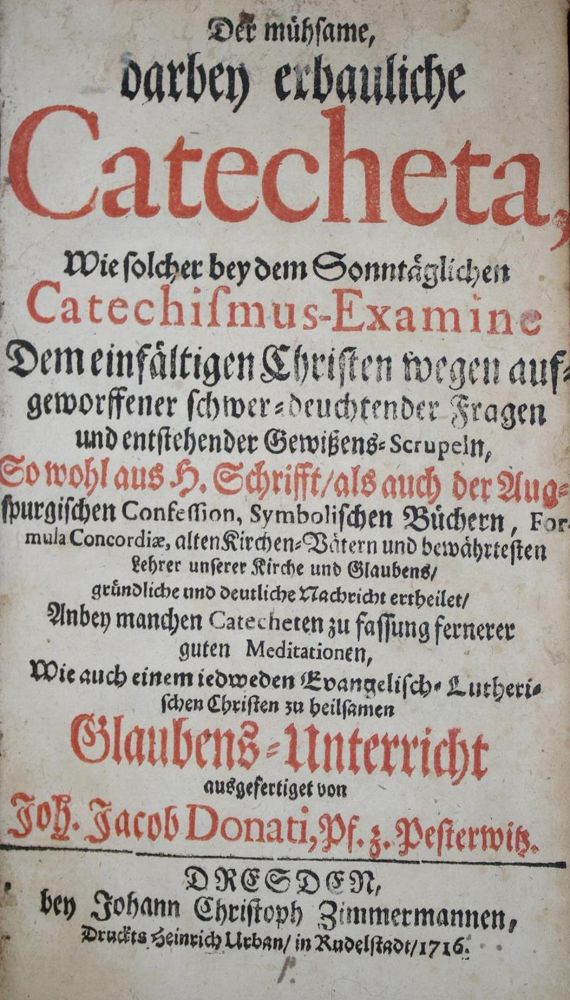 Der mühſame,
darbey erbauliche
Catecheta,
Wie ſolcher bey dem Sonntäglichen
Catechiſmus-Examine
Dem einfältigen Chriſten wegen auf-
geworffener ſchwer-deuchtender Fragen
und entſtehender Gewißens-Scrupeln,
So wohl aus H. Schrifft/ als auch der Aug-
ſpurgiſchen Confeſſion, Symboliſchen Büchern, For-
mula Concordiæ, alten Kirchen-Vätern und bewährteſten
Lehrer unſerer Kirche und Glaubens/
gründliche und deutliche Nachricht ertheilet/
Anbey manchen Catecheten zu faſſung fernerer
guten Meditationen,
Wie auch einem iedweden Evangeliſch-Lutheri-
ſchen Chriſten zu heilſamen
Glaubens-Unterricht
ausgefertiget von
Joh. Jacob Donati, Pf. z. Peſterwitz.
DRESDEN,
bey Johann Chriſtoph Zimmermannen,
Druckts Heinrich Urban/ in Rudelſtadt/ 1716.